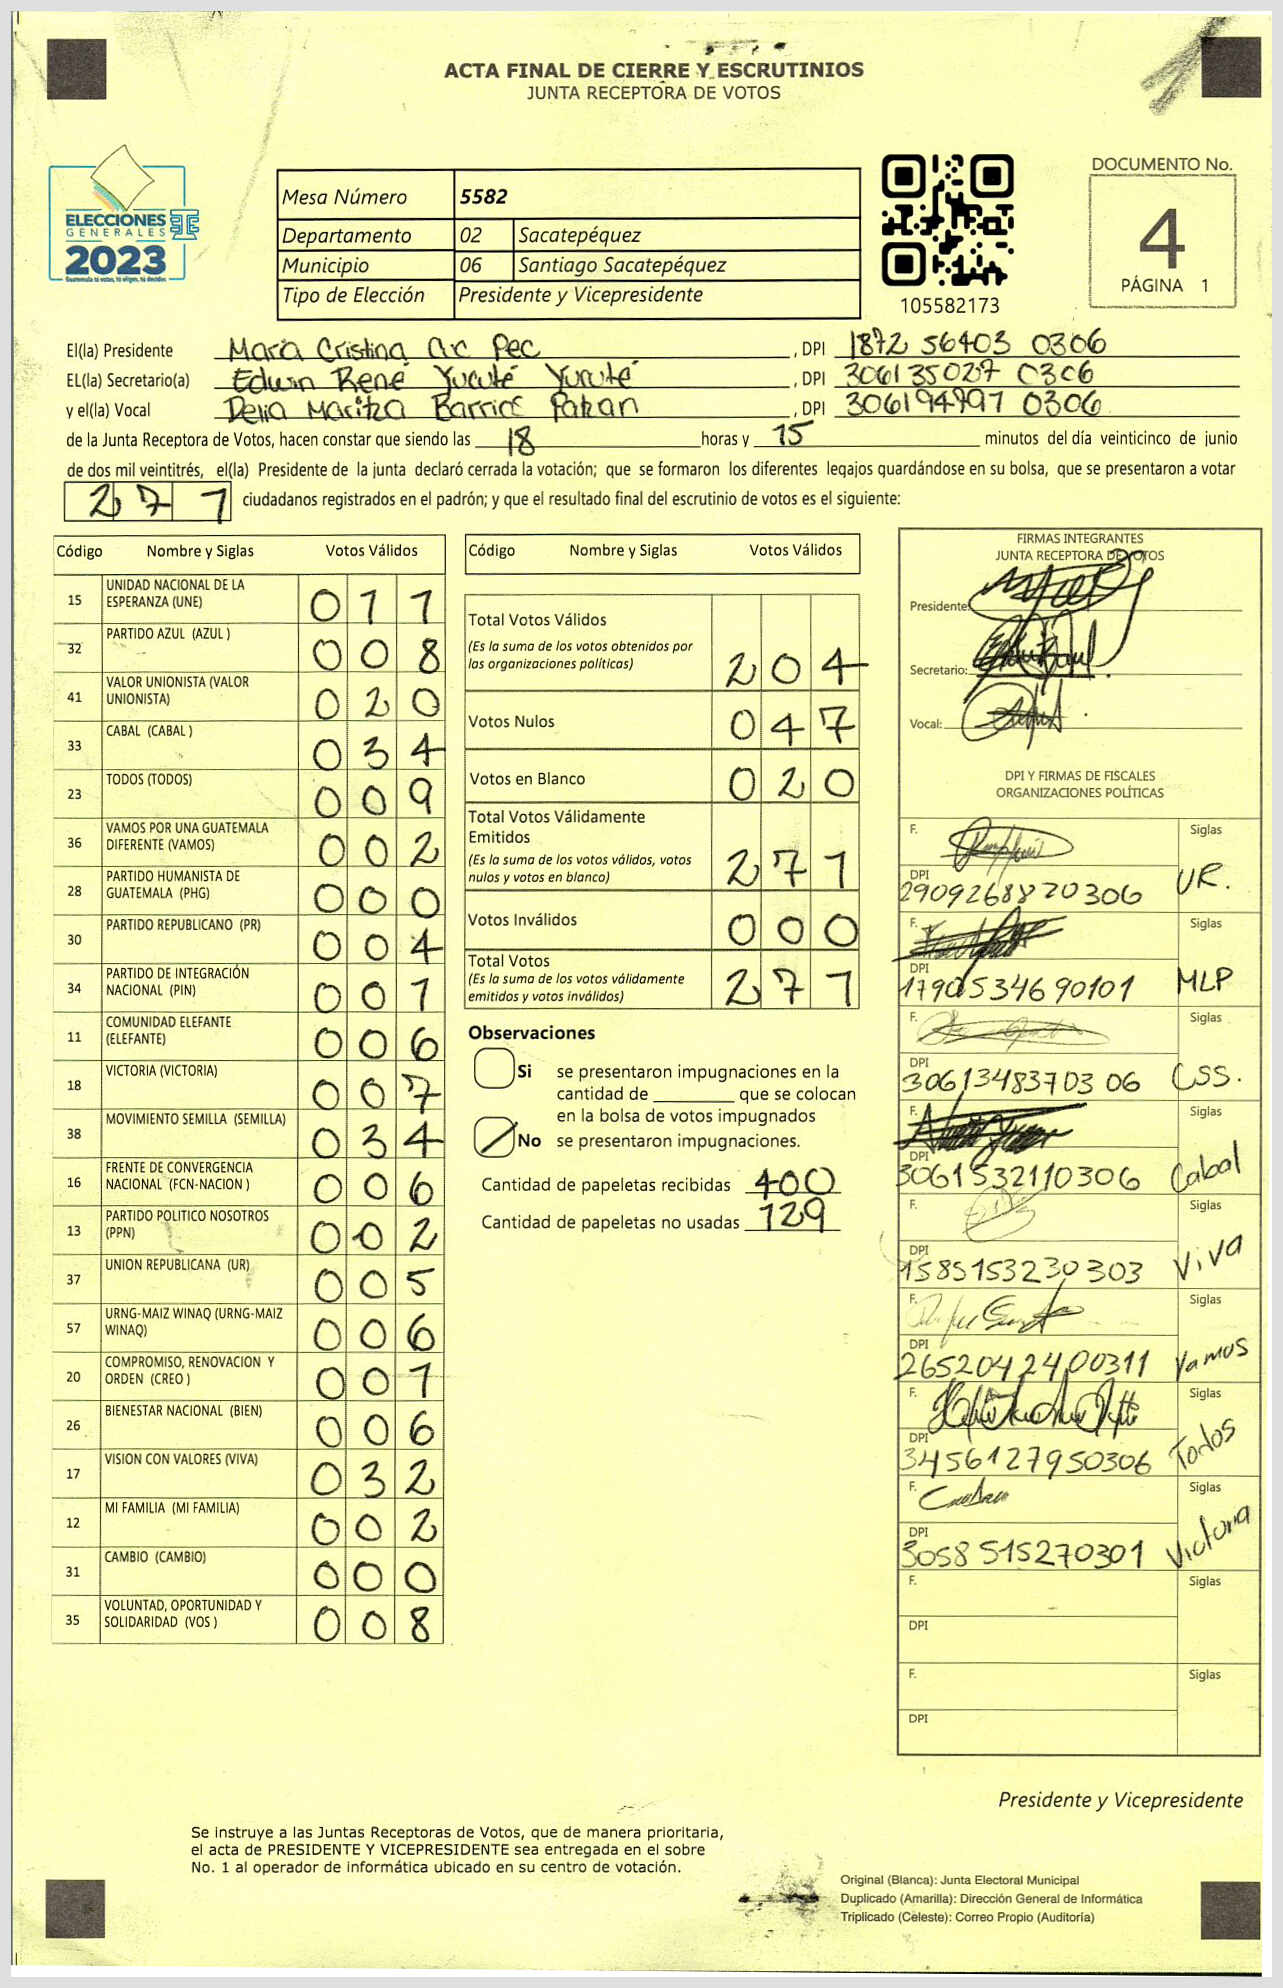 ACTA FINAL DE CIERRE Y ESCRUTINIOS
JUNTA RECEPTORA DE VOTOS
ELECCIONES
GENERALES
2023
Guatemala tú votas, tú eliges, tú decides
Mesa Número 5582
Departamento 02 Sacatepéquez
Municipio 06 Santiago Sacatepéquez
Tipo de Elección Presidente y Vicepresidente
105582173
DOCUMENTO No.
4
PÁGINA 1
El(la) Presidente María Cristina Pec , DPI 1872 56403 0306
EL(la) Secretario(a) Edwin René Yucuté Yucuté , DPI 306135027 0306
y el(la) Vocal Delia Maritza Barrios , DPI 306194797 0306
de la Junta Receptora de Votos, hacen constar que siendo las 18 horas y 15 minutos del día veinticinco de junio
de dos mil veintitrés, el(la) Presidente de la junta declaró cerrada la votación; que se formaron los diferentes legajos guardándose en su bolsa, que se presentaron a votar
271 ciudadanos registrados en el padrón; y que el resultado final del escrutinio de votos es el siguiente:
Código Nombre y Siglas Votos Válidos
15 UNIDAD NACIONAL DE LA ESPERANZA (UNE) 011
32 PARTIDO AZUL (AZUL ) 008
41 VALOR UNIONISTA (VALOR UNIONISTA) 020
33 CABAL (CABAL ) 034
23 TODOS (TODOS) 009
36 VAMOS POR UNA GUATEMALA DIFERENTE (VAMOS) 002
28 PARTIDO HUMANISTA DE GUATEMALA (PHG) 000
30 PARTIDO REPUBLICANO (PR) 004
34 PARTIDO DE INTEGRACIÓN NACIONAL (PIN) 001
11 COMUNIDAD ELEFANTE (ELEFANTE) 006
18 VICTORIA (VICTORIA) 007
38 MOVIMIENTO SEMILLA (SEMILLA) 034
16 FRENTE DE CONVERGENCIA NACIONAL (FCN-NACION ) 006
13 PARTIDO POLITICO NOSOTROS (PPN) 002
37 UNION REPUBLICANA (UR) 005
57 URNG-MAIZ WINAQ (URNG-MAIZ WINAQ) 006
20 COMPROMISO, RENOVACION Y ORDEN (CREO ) 001
26 BIENESTAR NACIONAL (BIEN) 006
17 VISION CON VALORES (VIVA) 032
12 MI FAMILIA (MI FAMILIA) 002
31 CAMBIO (CAMBIO) 000
35 VOLUNTAD, OPORTUNIDAD Y SOLIDARIDAD (VOS ) 008
Código Nombre y Siglas Votos Válidos
Total Votos Válidos
(Es la suma de los votos obtenidos por
las organizaciones políticas) 204
Votos Nulos 047
Votos en Blanco 020
Total Votos Válidamente
Emitidos
(Es la suma de los votos válidos, votos
nulos y votos en blanco) 271
Votos Inválidos 000
Total Votos
(Es la suma de los votos válidamente
emitidos y votos inválidos) 271
Observaciones
Si se presentaron impugnaciones en la
cantidad de ________ que se colocan
en la bolsa de votos impugnados
No se presentaron impugnaciones.
Cantidad de papeletas recibidas 400
Cantidad de papeletas no usadas 129
FIRMAS INTEGRANTES
JUNTA RECEPTORA DE VOTOS
Presidente:
Secretario:
Vocal:
DPI Y FIRMAS DE FISCALES
ORGANIZACIONES POLÍTICAS
F. Siglas
DPI
2909268820306 UR.
F. Siglas
DPI
1790534690101 MLP
F. Siglas
DPI
3061348370306 CSS.
F. Siglas
DPI
3061532110306 Cabal
F. Siglas
DPI
1585153230303 Viva
F. Siglas
DPI
2652042400311 Vamos
F. Siglas
DPI
3456127950306 Todos
F. Siglas
DPI
3058 515270301 Victoria
F. Siglas
DPI
F. Siglas
DPI
Presidente y Vicepresidente
Se instruye a las Juntas Receptoras de Votos, que de manera prioritaria,
el acta de PRESIDENTE Y VICEPRESIDENTE sea entregada en el sobre
No. 1 al operador de informática ubicado en su centro de votación.
Original (Blanca): Junta Electoral Municipal
Duplicado (Amarilla): Dirección General de Informática
Triplicado (Celeste): Correo Propio (Auditoría)